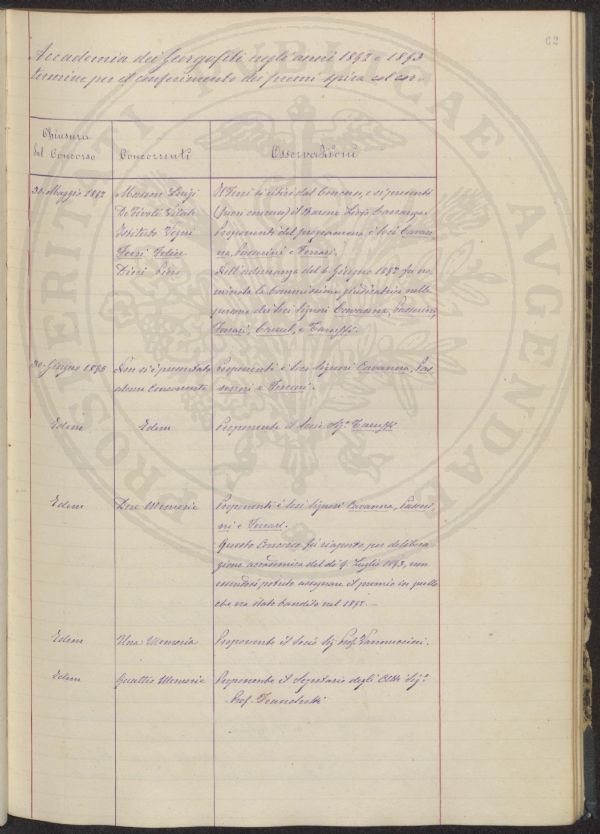 62
Accademia dei Georgofili negli anni 1892 e 1893
termine per il conferimento dei premi
Chiusura
del Concorso
Concorrenti
Osservazioni
30 Maggio 1892
Luigi
Istituto Vegni
Felice
Dieci
si ritirò dal Concorso, e si presentò
(fuori concorso) il Barone
Proponenti del programma i Soci Cavan
na, Passerini e Ferrari.
Nell'adunanza del 6 Giugno 1892 fu no
minata la Commissione giudicatrice nelle
persone dei Soci Signori Cavanna, Passerini,
Ferrari, e Caruso, e Tareffi.
30 Giugno 1893
Non si è presentato
alcun Concorrente
Proponenti i Soci Signori Cavanna, Pas
serini e Ferrari.
Edem
Edem
Proponente il Socio Sig.
Edem
Due Memorie
Proponenti i Soci Signori Cavanna, Passeri
ni e Ferrari.
Questo Concorso fu riaperto per delibera
zione accademica del dì 9 Luglio 1893, non
essendosi potuto assegnare il premio in quello
che era stato bandito nel 1892. —
Edem
Una Memoria
Proponente il Socio Sig. Prof. Vannuccini.
Edem
Quattro Memorie
Proponente il Segretario degli Atti Sig.
Prof. Franchetti
PROSPERITATI PUBLICAE AUGENDAE